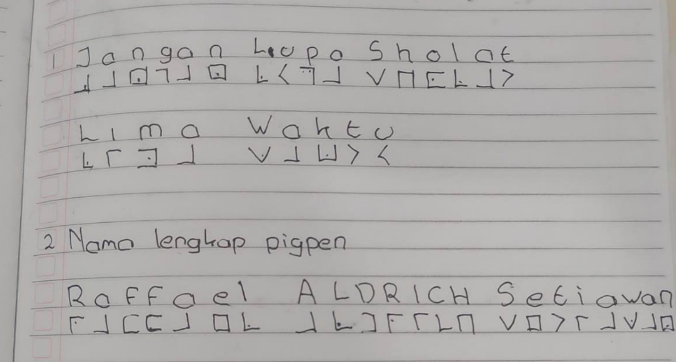 1 Jangan Lupa Sholat
Lima Waktu
2 Nama lengkap pigpen
Raffael ALDRICH Setiawan